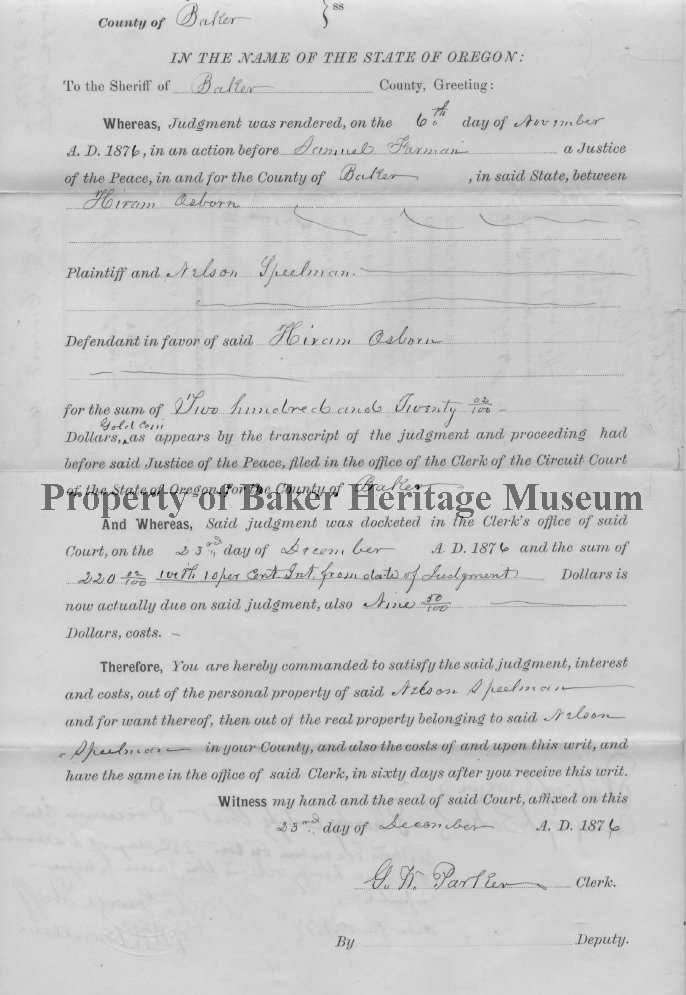 County of Baker } ss
IN THE NAME OF THE STATE OF OREGON:
To the Sheriff of Baker County, Greeting:
Whereas, Judgment was rendered, on the 6th day of November
A. D. 1876, in an action before Samuel Farman a Justice
of the Peace, in and for the County of Baker, in said State, between
Hiram Osborn
Plaintiff and Nelson Speelman
Defendant in favor of said Hiram Osborn
for the sum of Two hundred and Twenty 02/100
Gold Coin
Dollars, as appears by the transcript of the judgment and proceeding had
before said Justice of the Peace, filed in the office of the Clerk of the Circuit Court
of the State of Oregon for the County of Baker
Property of Baker Heritage Museum
And Whereas, Said judgment was docketed in the Clerk's office of said
Court, on the 23rd day of December A. D. 1876 and the sum of
220 02/100 with 10 per Cent Int. from date of Judgment Dollars is
now actually due on said judgment, also Nine 50/100
Dollars, costs.
Therefore, You are hereby commanded to satisfy the said judgment, interest
and costs, out of the personal property of said Nelson Speelman
and for want thereof, then out of the real property belonging to said Nelson
Speelman in your County, and also the costs of and upon this writ, and
have the same in the office of said Clerk, in sixty days after you receive this writ.
Witness my hand and the seal of said Court, affixed on this
23rd day of December A. D. 1876
G. W. Parker Clerk.
By Deputy.